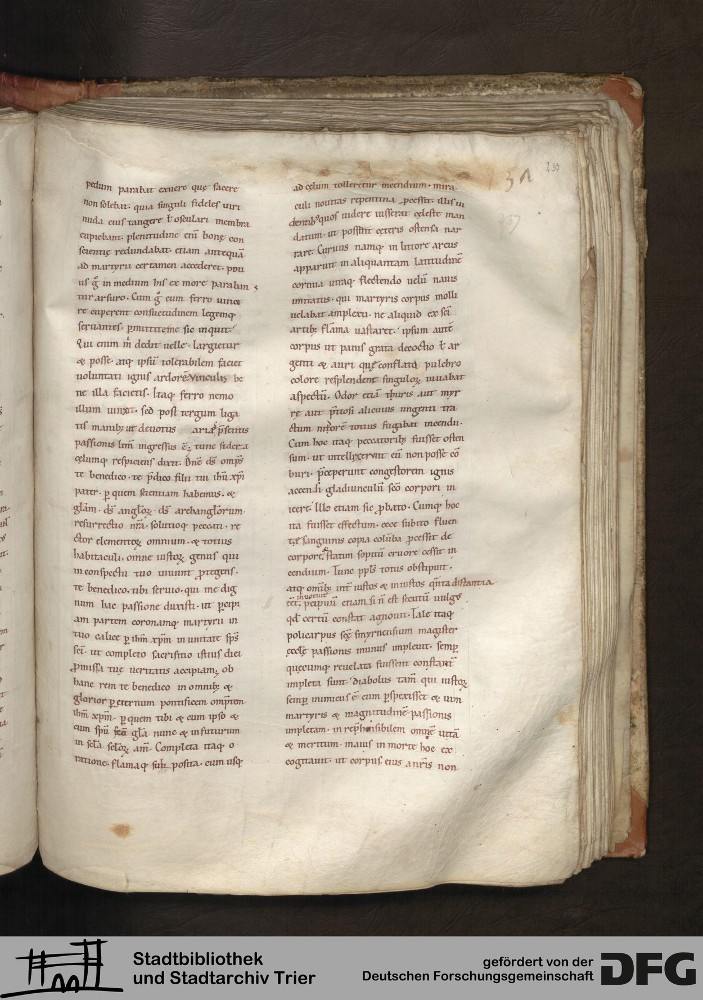 pedum parabat exuere quę sacere
non solebat. quia singuli fideles uiri
nuda eius tangere ł osculari membra
cupiebant. plenitudine etiā bonę con
scientię redundabat. etiam antequā
ad martyrii certamen accederet. posi
us g̊ in medium his ex more paratum
tur arsuro. Cum g̊ eum ferro
re cuperent consuetudinem legemq
seruantes. pmittite me sic inquit.
Qui enim m dedit uelle. largietur
& posse. atq ipsū tolerabilem faciet
uoluntati ignis ardorē. Vinculis be
ne illa facietis. Itaq ferro nemo
illum uinxit. sed post tergum liga
tis manib; ut deuotus
passionis ingressus ē; tunc sidera
cęlumq respiciens dixit. Dn̄e ds omps
te benedico. te pdico filii tui ihū xpi
pater. p quem scientiam habemus. &
glam. ds anglox. ds archanglorum.
resurrectio nr̄a. solutioq peccati. re
ctor elementox omnium. & totius
habitaculi. omne iustox genus qui
in conspectu tuo uiuunt ptegens.
te benedico. tibi seruio. qui me dig
num hac passione duxisti. ut pcipi
am partem coronamq martyrii in
tuo calice p ihm xpm in unitate sps
sci. ut completo sacrificio istius diei
pmissa tuę ueritatis accipiam; ob
hanc rem te benedico in omnib; &
glorior p eternum pontificem
ihm xpm. p quem tibi & cum ipso &
cum spū gla nunc & in futurum
in scla sclox am̄. Completa itaq o
ratione. flamaq posita. cum usq
ad celum tolleretur incendium. mira
culi nouitas repentina pcessit. illis ui
dentib; quos uidere iusserat cęleste man
datum. ut possent ceteris ostensa nar
rare. Curuus namq in littore arcus
apparuit in aliquantam latitudinē
cornua utraq flectendo uelū nauis
imitatus. qui martyris corpus molli
uelabat amplexu. ne aliquid ex sci
artib; flāma uastaret. ipsum autē
corpus ut panis grata decoctio ł ar
genti & auri que conflatio pulchro
colore resplendens singulox iuuabat
aspectū. Odor etiā thuris aut myr
re aut p̄tiosi alicuius ungenti tra
ctum totius fugabat incendii.
Cum hoc itaq peccatorib; fuisset osten
sum. ut intellexerunt eū non posse cō
buri. p̄ceperunt congestorem ignis
accendi gladiunculū sc̄o corpori in
icere. Illo etiam sic pbato. Cumq hoc
ita fuisset effectum. ecce subito fluen
te sanguinis copia colūba pcessit de
corpore. statim sopitū cruore cessit in
cendium. Tunc ppls totus obstipuit.
atq omib; int iustos & iniustos q̄nta distantia
inuenta
etiam si n̄ est secutū uulgus
qd certū constat agnouit. Tale itaq
policarpus scę smyrnensium magister
ecclę passionis munus impleuit. semp
quęcumq reuelata fuissent constanti
impleta sunt. diabolus tam̄ qui iustox
semp inimicus ē. cum pspexisset & uim
martyris & magnitudinē passionis
impletam. in rephensibilem omnē uitā
& meritum. maius in morte hoc ex
cogitauit. ut corpus eius nr̄is non
Stadtbibliothek
und Stadtarchiv Trier
gefördert von der
Deutschen Forschungsgemeinschaft
DFG